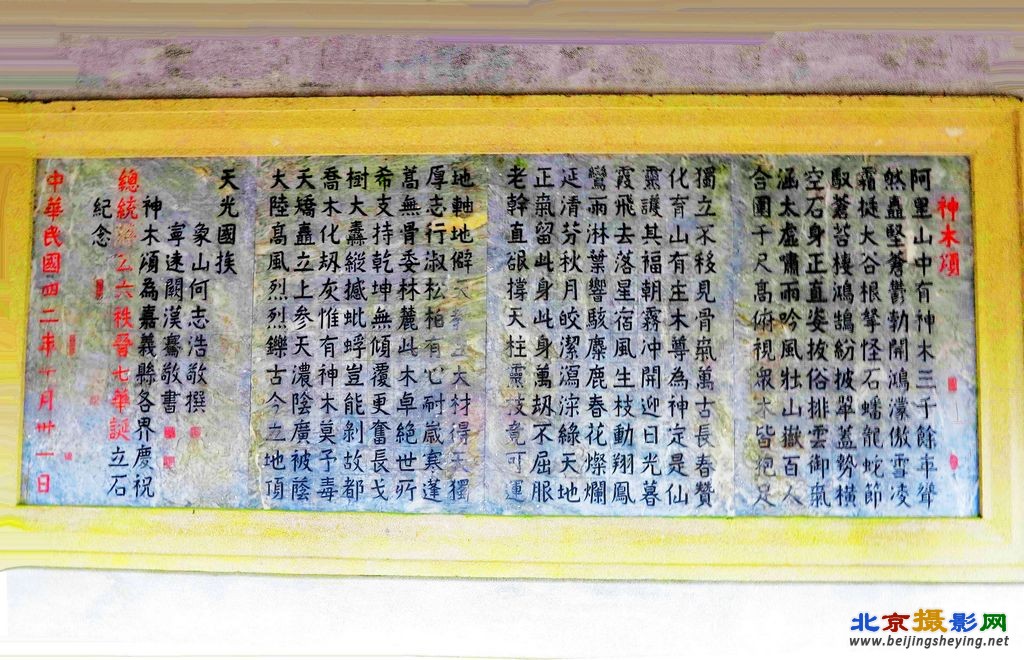 神木頌
阿里山中有神木三千餘年聳
然矗堅蒼鬱勃開鴻濛傲雪凌
霜挺大谷根拏怪石蟠龍蛇節
馭蒼苔棲鴻鵠紛披翠蓋勢橫
空石身正直姿拔俗排雲御氣
涵太虛嘯雨吟風壯山嶽百人
合圍千尺高俯視眾木皆抱足
獨立不移見骨氣萬古長春贊
化育山有主木尊為神定是仙
靈護其福朝霧冲開迎日光暮
霞飛去落星宿風生枝動翔鳳
鸞雨淋葉響駭麋鹿春花燦爛
延清芬秋月皎潔瀉淙綠天地
正氣留此身此身萬刼不屈服
老幹直硍撐天柱靈技竟可運
地軸地僻天拏立大材得天獨
厚志行淑松柏有心耐歲寒蓬
蒿無骨委林麓此木卓絕世所
希支持乾坤無傾覆更奮長戈
樹大纛縱撼蚍蜉豈能剝故都
喬木化刼灰惟有神木莫予毒
天矯矗立上参天濃陰廣被蔭
大陸高風烈烈鑠古今立地頂
天光國族
象山何志浩敬撰
寧遠闕漢騫敬書
神木頌為嘉義縣各界慶祝
總統 六秩晉七華誕立石
紀念
中華民國四二年十月卅一日
北京摄影网
www.beijingsheying.net